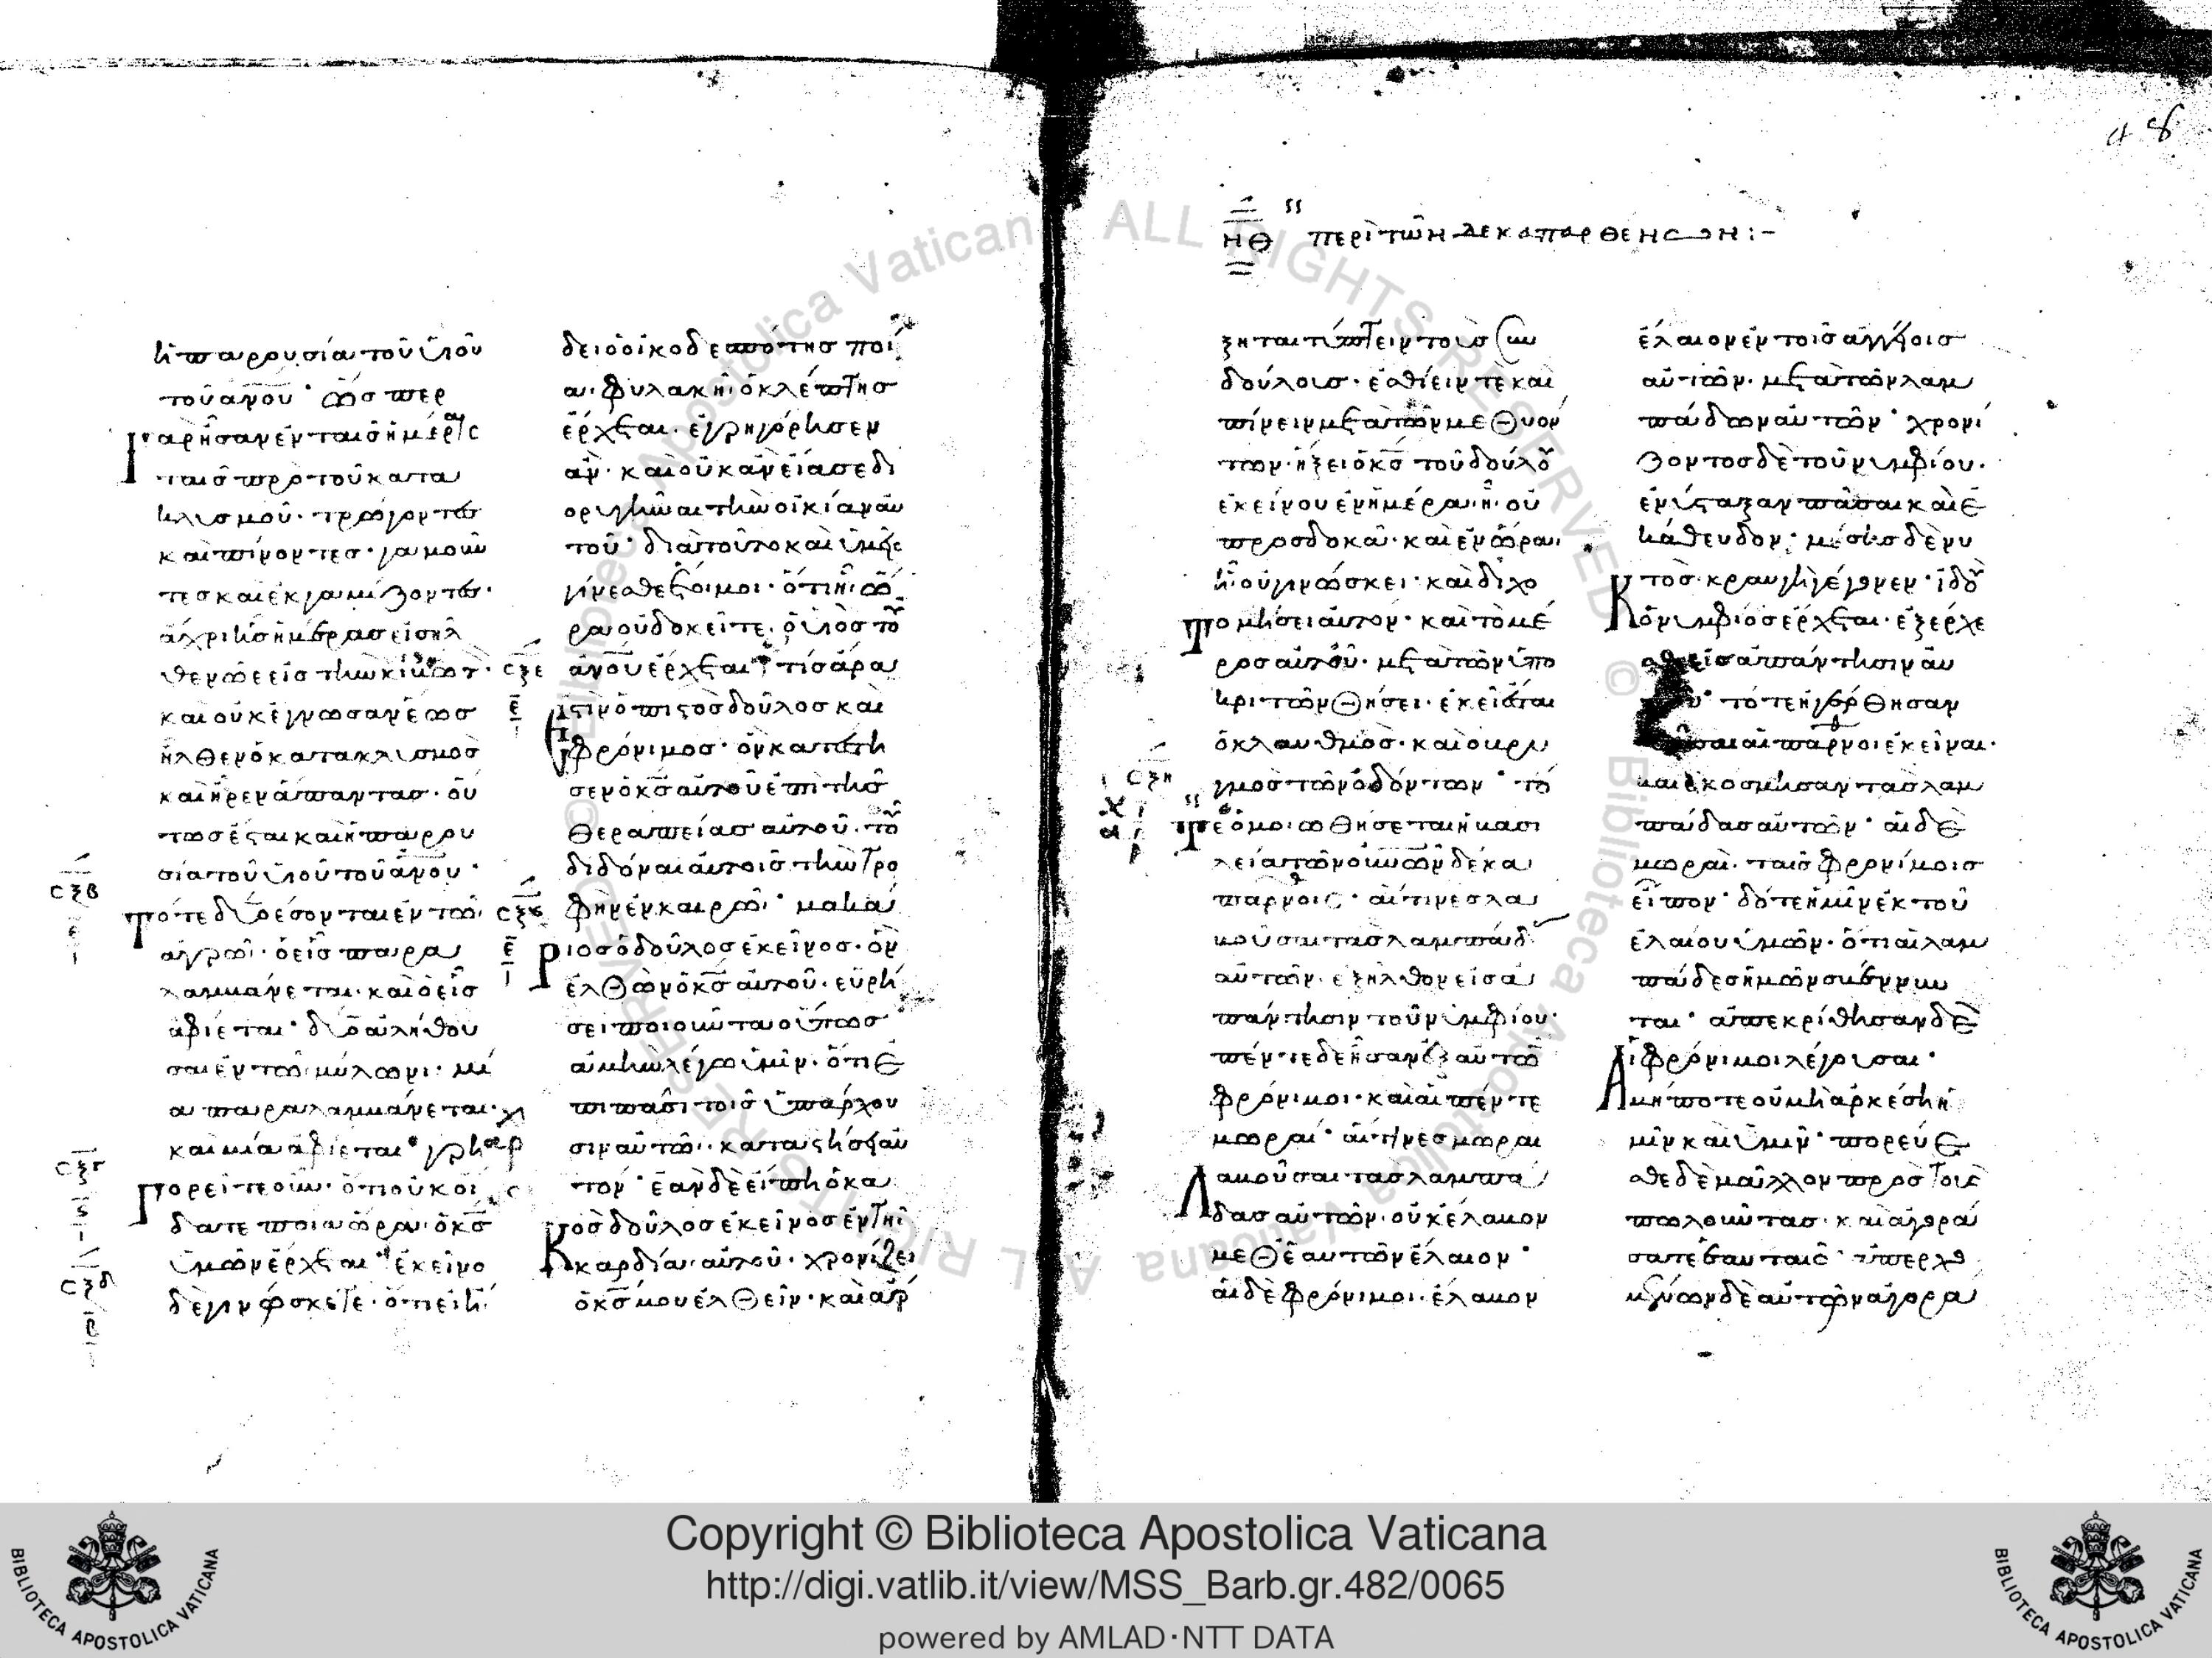 48
ηθ περὶ τῶν δεκα παρθένων :-
ἡ παρουσία τοῦ υἱοῦ
τοῦ ἀνου· ὥσπερ
γὰρ ἦσαν ἐν ταῖς ἡμέραις
ταῖς πρὸ τοῦ κατα
κλυσμοῦ· τρώγοντες
καὶ πίνοντες· γαμοῦν
τες καὶ ἐκγαμίζοντες·
ἄχρι ἧς ἡμέρας εἰσῆλ
θεν νῶε εἰς τὴν κιβωτ·
καὶ οὐκ ἔγνωσαν ἕως
ἦλθεν ὁ κατακλυσμὸς
καὶ ἦρεν ἅπαντας· οὕ
τως ἔσται καὶ ἡ παρου
σία τοῦ υἱοῦ τοῦ ἀνου·
σξβ
τότε δύο ἔσονται ἐν τῶ
ἀγρῶ· ὁ εἷς παρα
λαμβάνεται· καὶ ὁ εἷς
ἀφίεται· δύο ἀλήθου
σαι ἐν τῶ μύλωνι· μί
α παραλαμβάνεται·
καὶ μία ἀφίεται· γρη
σξγ
γορεῖτε οὖν· ὅτι οὐκ οἴ
δατε ποία ὥρα ὁ κς
ὑμῶν ἔρχεται· ἐκεῖνο
σξδ
δὲ γινώσκετε· ὅτι εἰ ἤ
δει ὁ οἰκοδεσπότης ποί
α φυλακῆ ὁ κλέπτης
ἔρχεται· ἐγρηγόρησεν
ἄν· καὶ οὐκ ἂν εἴασε δι
ορυγῆναι τὴν οἰκίαν αὐ
τοῦ· διατοῦτο καὶ ὑμεῖς
γίνεσθε ἕτοιμοι· ὅτι ἧ ὥ
ρα οὐ δοκεῖτε· ὁ υἱὸς τοῦ
σξε ἀνου ἔρχεται· τίς ἄρα
ἐστὶν ὁ πιστὸς δοῦλος καὶ
φρόνιμος· ὃν κατέστη
σεν ὁ κς αὐτοῦ ἐπὶ τῆς
θεραπείας αὐτοῦ· τοῦ
διδόναι αὐτοῖς τὴν τρο
σξς φὴν ἐν καιρῶ· μακά
ριος ὁ δοῦλος ἐκεῖνος· ὃν
ἐλθὼν ὁ κς αὐτοῦ· εὑρή
σει ποιοῦντα οὕτως
ἀμὴν λέγω ὑμῖν· ὅτι ἐ
πὶ πᾶσι τοῖς ὑπάρχου
σιν αὐτοῦ· καταστήσει αὐ
τόν· ἐὰν δὲ εἴπη ὁ κα
κὸς δοῦλος ἐκεῖνος ἐν τῆ
καρδία αὐτοῦ· χρονίζει
ὁ κς μου ἐλθεῖν· καὶ ἄρ
ξηται τύπτειν τοὺς συν
δούλους· ἐσθίειν τὲ καὶ
πίνειν μετὰ τῶν μεθυόν
των· ἥξει ὁ κς τοῦ δούλου
ἐκείνου ἐν ἡμέρα ἧ οὐ
προσδοκᾶ· καὶ ἐν ὥρα
ἧ οὐ γινώσκει· καὶ διχο
τομήσει αὐτόν· καὶ τὸ μέ
ρος αὐτοῦ· μετὰ τῶν ὑπο
κριτῶν θήσει· ἐκεῖ ἔσται
ὁ κλαυθμὸς· καὶ ὁ βρυ
σξη γμὸς τῶν ὀδόντων· τό
τε ὁμοιωθήσεται ἡ βασι
λεία τῶν οὐνων δέκα
παρνοις· αἵτινες λα
βοῦσαι τὰς λαμπάδ
αὐτῶν· ἐξῆλθον εἰς ἀ
πάντησιν τοῦ νυμφίου·
πέντε δὲ ἦσαν ἐξ αὐτῶ
φρόνιμοι· καὶ αἱ πέντε
μωραί· αἵτινες μωραι
λαβοῦσαι τὰς λαμπά
δας αὐτῶν· οὐκ ἔλαβον
μεθ ἑαυτῶν ἔλαιον·
αἱ δὲ φρόνιμοι· ἔλαβον
ἔλαιον ἐν τοῖς ἀγγείοις
αὐτῶν· μετὰ τῶν λαμ
πάδων αὐτῶν· χρονί
ζοντος δὲ τοῦ νυμφίου·
ἐνύσταξαν πᾶσαι καὶ ἐ
κάθευδον· μέσης δὲ νυ
κτὸς· κραυγὴ γέγονεν· ἰδοῦ
ὁ νυμφίος ἔρχεται· ἐξέρχε
εἰς ἀπάντησιν αὐ
τότε ἠγέρθησαν
αἱ παρνοι ἐκεῖναι·
καὶ ἐκόσμησαν τὰς λαμ
πάδας αὐτῶν· αἱ δὲ
μωραὶ· ταῖς φρονίμοις
εἶπον· δότε ἡμῖν ἐκ τοῦ
ἐλαίου ὑμῶν· ὅτι αἱ λαμ
πάδες ἡμῶν σβέννυν
ται· ἀπεκρίθησαν δὲ
αἱ φρόνιμοι λέγουσαι·
μήποτε οὐ μὴ ἀρκέση ἡ
μῖν καὶ ὑμῖν· πορεύε
σθε δὲ μᾶλλον πρὸς τοὺς
πωλοῦντας· καὶ ἀγορά
σατε ἑαυταῖς· ἀπερχο
μένων δὲ αὐτῶν ἀγορα
Copyright © Biblioteca Apostolica Vaticana
http://digi.vatlib.it/view/MSS_Barb.gr.482/0065
powered by AMLAD·NTT DATA
BIBLIOTECA APOSTOLICA VATICANA
BIBLIOTECA APOSTOLICA VATICANA